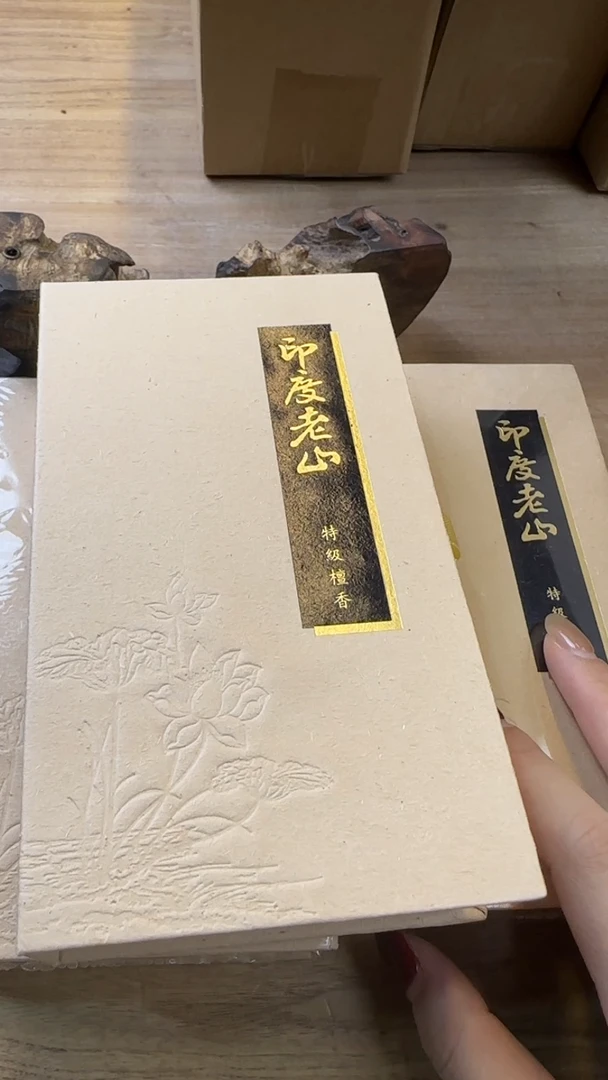 印度老山
特级檀香
印度老山
特级